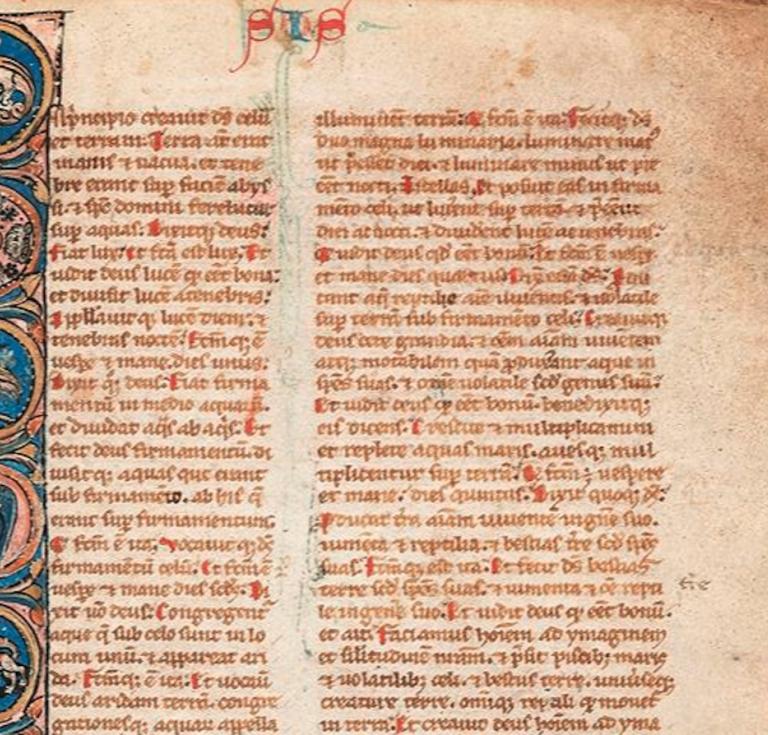 SIS
Jn principio creauit ds celū
et terram. Terra aūt erat
inanis & uacua. et tene
bre erant sup faciem abys
si. & sps domini ferebatur
sup aquas. Dixitq; deus.
Fiat lux. et fcā est lux. Et
uidit deus lucē q eēt bona.
et diuisit lucē a tenebris.
Appllauit q; lucē diem. &
tenebras noctē. Fcm q; ē
uespe & mane. dies unus.
Dixit q; deus. Fiat firma
mentū in medio aquarū.
et diuidat aqs ab aqs. Et
fecit deus firmamentū. di
uisit q; aquas que erant
sub firmamēto. ab his q
erant sup firmamentum.
& fcm ē ita. Vocauit q; ds
firmamētū celū. et fcm ē
uespe & mane dies scds. Di
xit uo deus. Congregent
aque q sub celo sunt in lo
cum unū. & appareat ari
da. Fcm q; ē ita. Et uocauit
deus aridam terrā. congre
gationesq; aquar appella
illuminēt terrā. & fcm ē ita. Fecitq; ds
duo magna luminaria. luminare mai9
ut pēsset diei. & luminare minus ut pre
eēt nocti. & stellas. Et posuit eas in firma
mēto celi. ut lucent sup terrā. & pēent
diei ac nocti. & diuiderēt lucē ac tenebras.
& uidit deus qd eēt bonū. Et fcm ē uespe
et mane dies quartus. Dix eciā ds. Produ
cant aq reptile aīe uiuentis. & uolatile
sup terrā sub firmamēto celi. Creauitq;
deus cete grandia. & oēm aīam uiuentem
atq; motabilem quā pduxant aque in
spēs suas. & omē uolatile scd genus suū.
Et uidit deus q eēt bonū. benedixitq;
eis dicens. Crescite & multiplicamini
et replete aquas maris. auesq; mul
tiplicentur sup terrā. & fcm ē uespere
et mane. dies quintus. Dixit quoq; ds.
Producat tra aīam uiuente in gñe suo.
iumēta & reptilia. & bestias tre scd spēs
suas. Fcm q; est ita. Et fecit ds bestias
terre scd spēs suas. & iumenta & oē repti
le in genere suo. Et uidit deus q eēt bonū.
et ait. Faciamus hoīem ad ymaginem
et silitudinē nram. & psit piscib; maris
& uolatilib; celi. & bestiis terre. uniuseq;
creature terre. omiq; reptili q mouet
in terra. Et creauit deus hoīem ad yma